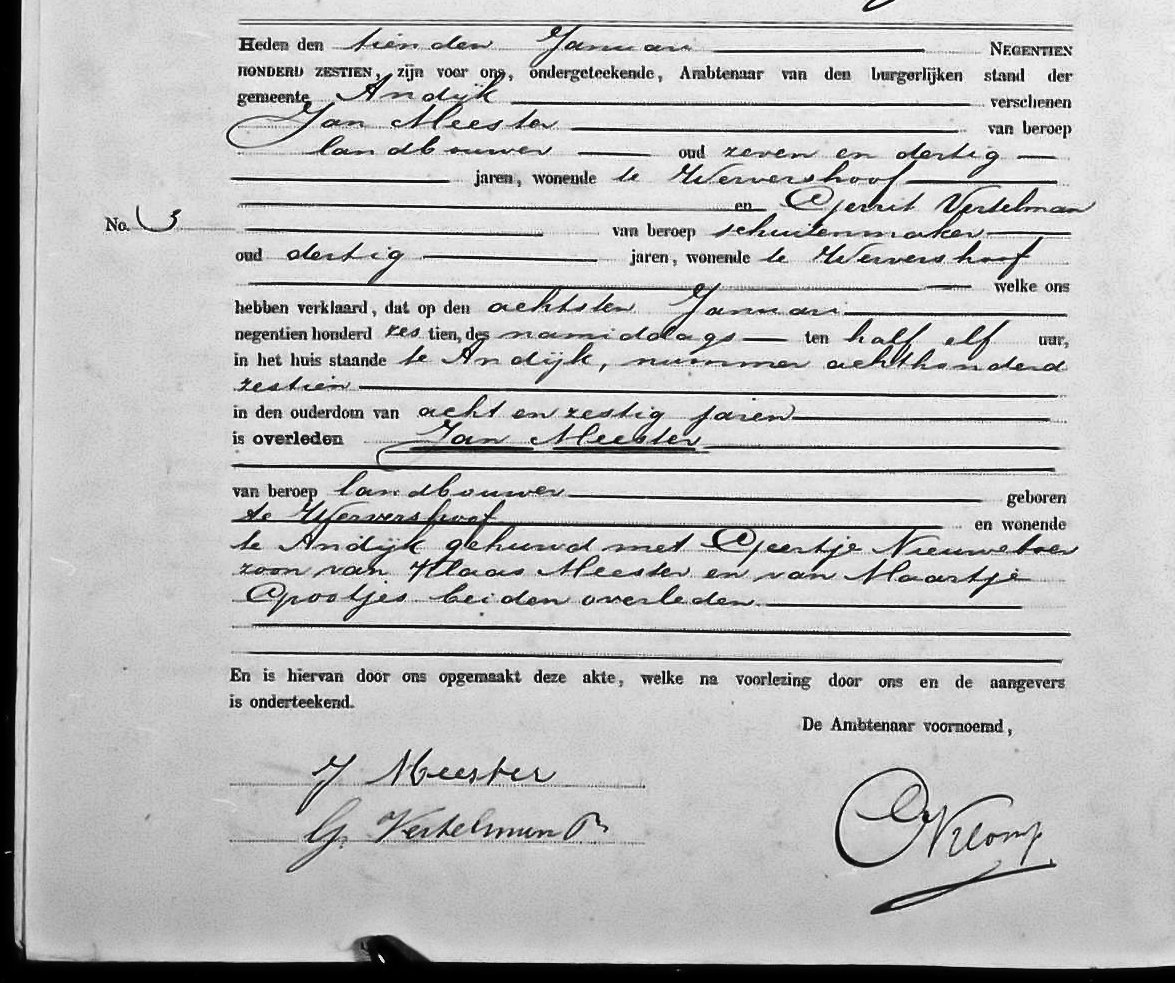 Heden den tienden Januari NEGENTIEN
HONDERD ZESTIEN, zijn voor ons, ondergeteekende, Ambtenaar van den burgerlijken stand der
gemeente Andijk verschenen
Jan Meester van beroep
landbouwer oud zeven en dertig
jaren, wonende te Wervershoof
en Gerrit Vertelman
No. 3 van beroep schuitenmaker
oud dertig jaren, wonende te Wervershoof
welke ons
hebben verklaard, dat op den achtsten Januari
negentien honderd zes tien, des namiddags ten half elf uur,
in het huis staande te Andijk, nummer achthonderd
zestien
in den ouderdom van acht en zestig jaren
is overleden Jan Meester
van beroep landbouwer geboren
te Wervershoof en wonende
te Andijk gehuwd met Geertje Nieuweboer
zoon van Klaas Meester en van Maartje
Grootjes beiden overleden
En is hiervan door ons opgemaakt deze akte, welke na voorlezing door ons en de aangevers
is onderteekend.
De Ambtenaar voornoemd,
J Meester
G. Vertelman